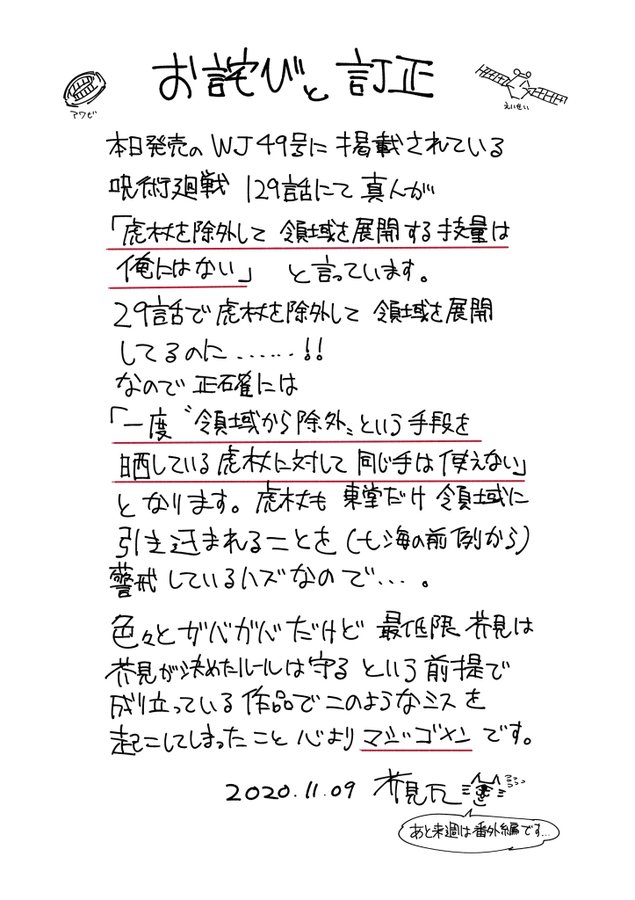 お詫びと訂正
アワビ
えいせい
本日発売のWJ49号に掲載されている
呪術廻戦 129話にて真人が
「虎杖を除外して 領域を展開する技量は
俺にはない」 と言っています。
29話で虎杖を除外して 領域を展開
してるのに……!!
なので正確には
「一度〝領域から除外〟という手段を
晒している虎杖に対して同じ手は使えない」
となります。虎杖も 東堂だけ 領域に
引き込まれることを(七海の前例から)
警戒しているハズなので…。
色々とガバガバだけど 最低限 芥見は
芥見が決めたルールは守る という前提で
成り立っている作品でこのようなミスを
起こしてしまったこと 心より マジゴメン です。
2020.11.09 芥見下々
あと来週は番外編です…